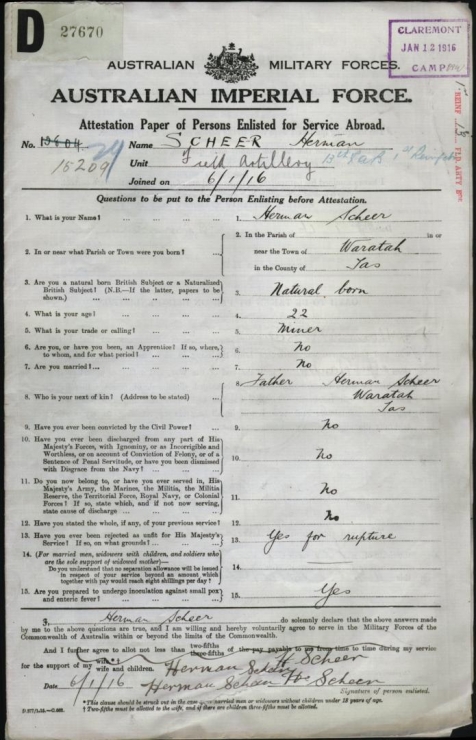 D 27670
CLAREMONT
JAN 12 1916
CAMP
AUSTRALIAN MILITARY FORCES.
AUSTRALIAN IMPERIAL FORCE.
Attestation Paper of Persons Enlisted for Service Abroad.
No. 15209 Name SCHEER Herman
Unit Field Artillery
Joined on 6/1/16
Questions to be put to the Person Enlisting before Attestation.
1. What is your Name? ... ... ... ... 1. Herman Scheer
2. In or near what Parish or Town were you born? ... 2. In the Parish of in or
near the Town of Waratah
in the County of Tas
3. Are you a natural born British Subject or a Naturalized
British Subject? (N.B.—If the latter, papers to be
shown.) ... ... ... ... 3. Natural born
4. What is your age? ... ... ... ... 4. 22
5. What is your trade or calling? ... ... ... 5. Miner
6. Are you, or have you been, an Apprentice? If so, where,
to whom, and for what period? ... ... ... 6. No
7. Are you married?... ... ... ... 7. No
8. Who is your next of kin? (Address to be stated) ... 8. Father Herman Scheer
Waratah
Tas
9. Have you ever been convicted by the Civil Power? ... 9. No
10. Have you ever been discharged from any part of His
Majesty's Forces, with Ignominy, or as Incorrigible and
Worthless, or on account of Conviction of Felony, or of a
Sentence of Penal Servitude, or have you been dismissed
with Disgrace from the Navy? ... ... ... 10. No
11. Do you now belong to, or have you ever served in, His
Majesty's Army, the Marines, the Militia, the Militia
Reserve, the Territorial Force, Royal Navy, or Colonial
Forces? If so, state which, and if not now serving,
state cause of discharge ... ... ... 11. No
12. Have you stated the whole, if any, of your previous service? 12. No
13. Have you ever been rejected as unfit for His Majesty's
Service? If so, on what grounds? ... ... 13. Yes for rupture
14. (For married men, widowers with children, and soldiers who
are the sole support of widowed mother)—
Do you understand that no separation allowance will be issued
in respect of your service beyond an amount which
together with pay would reach eight shillings per day? 14.
15. Are you prepared to undergo inoculation against small pox
and enteric fever? ... ... ... ... 15. Yes
I, Herman Scheer do solemnly declare that the above answers made
by me to the above questions are true, and I am willing and hereby voluntarily agree to serve in the Military Forces of the
Commonwealth of Australia within or beyond the limits of the Commonwealth.
And I further agree to allot not less than two-fifths three-fifths of the pay payable to me from time to time during my service
for the support of my wife wife and children. H Scheer
Herman Scheer
Date 6/1/16 Herman Scheer H Scheer
Signature of person enlisted.
*This clause should be struck out in the case of unmarried men or widowers without children under 18 years of age.
†Two-fifths must be allotted to the wife, and if there are children three-fifths must be allotted.